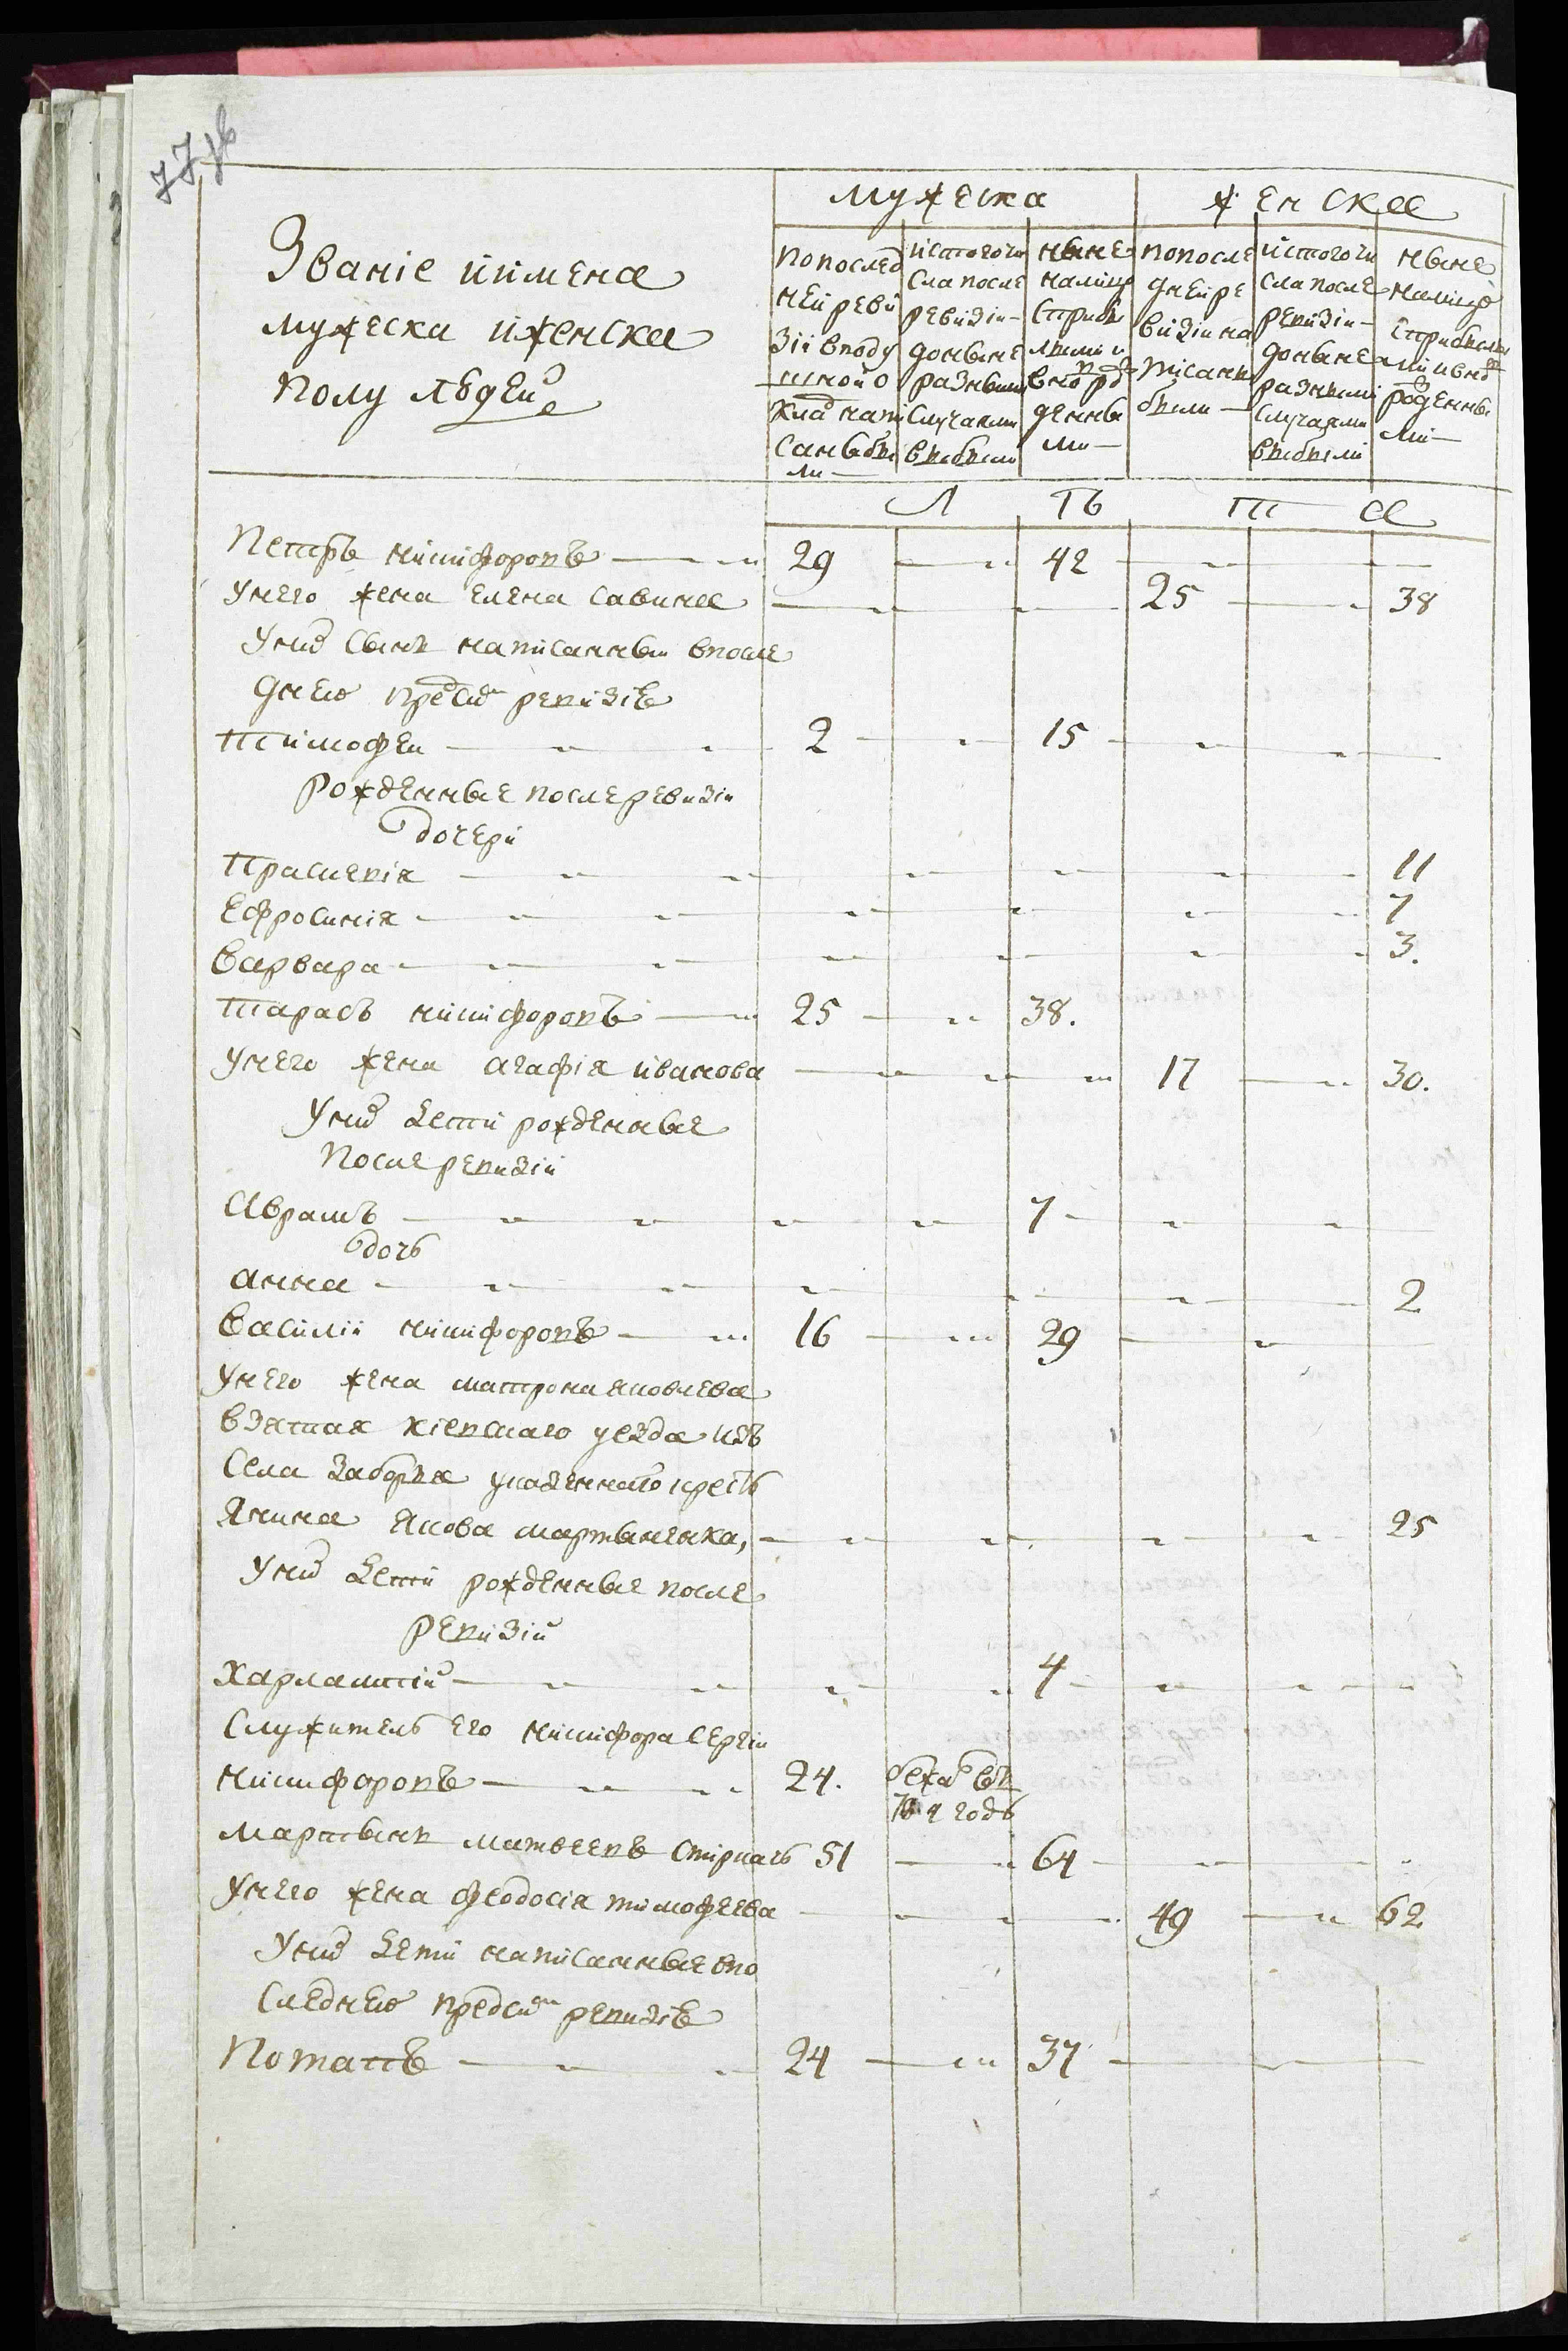 77 зв
Званiе и имена
мужеска и женска
полу людей
мужеска
женска
по послед
ней реви
зiи в поду
шной о
клад напи
саны бы
ли
ис того чи
сла после
ревизiи
до ныне
разными
случаями
выбыли
ныне
на лицо
с прибы
лыми и
вновь ро
жденны
ми
по после
дней ре
визiи на
писаны
были
ис того чи
сла после
ревизiи
до ныне
разными
случаями
выбыли
ныне
на лицо
с прибылы
ми и вновь
рожденны
ми
л ѣ т а
Петръ никифоровъ 29 42
У него жена елена савина 25 38
У них сынъ написанный в после
днею пред сим ревизiю
Тимофей 2 15
рожденные после ревизiи
дочери
Прасковiя 11
Ефросинiя 7
Варвара 3.
Тарасъ никифоровъ 25 38.
У него жена агафiя иванова 17 30.
У них дети рожденные
после ревизiи
Аврамъ 7
дочь
анна 2
Василiй никифоровъ 16 29
У него жена матрона яковлева
взятая кiевскаго уезда изъ
села заборья указеннаго кресть
янина якова мартыненка, 25
У них дети рожденные после
ревизiи
Харлампiй 4
Служитель его никифора сергiй
никифоровъ 24. бежал въ
годъ
Мартынъ матвеевъ стрикачъ 51 64
У него жена феодосiя тимофеева 49 62
У них дети написанные в по
следнею пред сим ревизiю
Потапъ 24 37